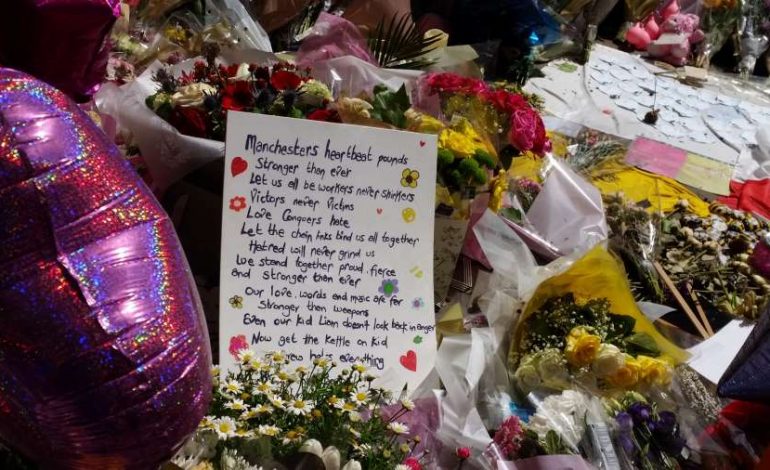 Manchesters heartbeat pounds
Stronger than ever
Let us all be workers never shirkers
Victors never Victims
Love Conquers hate
Let the chain links bind us all together
Hatred will never grind us
We stand together proud, fierce
and stronger than ever
Our love, words and music are far
Stronger than weapons
Even our kid Liam doesn't look back in anger
Now get the Kettle on Kid
brew helps everything